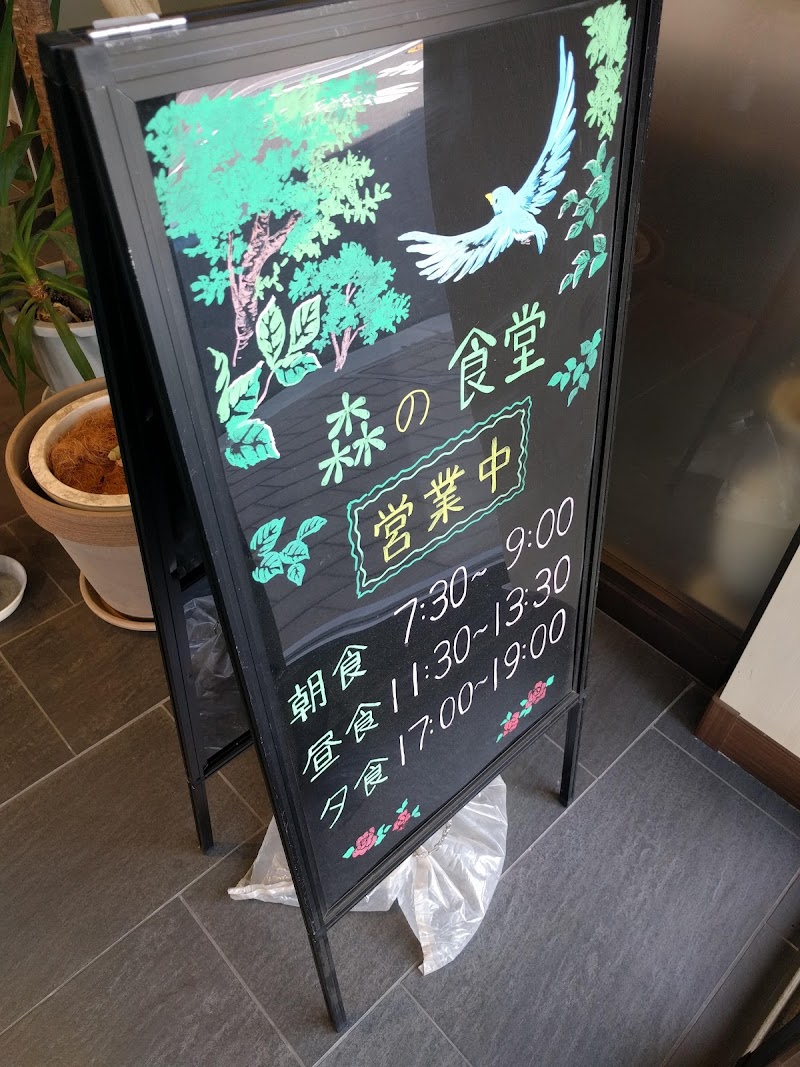 森の食堂
営業中
朝食 7:30~ 9:00
昼食 11:30~13:30
夕食 17:00~19:00